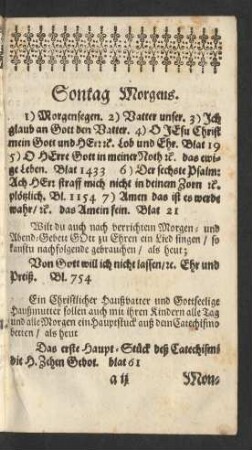 Sontag Morgens.
1) Morgensegen. 2) Vatter unser. 3) Jch
glaub an Gott den Vatter. 4) O JEsu Christ
mein Gott und HErr ꝛc. Lob und Ehr. Blat 19
5) O HErre Gott in meiner Noth ꝛc. das ewi-
ge Leben. Blat 1433 6) Der sechste Psalm:
Ach HErr straff mich nicht in deinem Zorn ꝛc.
plötzlich. Bl. 1154 7) Amen das ist es werde
wahr / ꝛc. das Amein fein. Blat 21
Wilt du auch nach verrichtem Morgen- und
Abend-Gebett GOtt zu Ehren ein Lied singen / so
kanstu nachfolgende gebrauchen / als heut;
Von Gott will ich nicht lassen / ꝛc. Ehr und
Preiß. Bl. 754
Ein Christlicher Haußvatter und Gottseelige
Haußmutter sollen auch mit ihren Kindern alle Tag
und alle Morgen ein Hauptstuck auß dem Catechismo
betten / als heut
Das erste Haupt-Stück deß Catechismi
die H. Zehen Gebot. blat 61
a ij Mon-